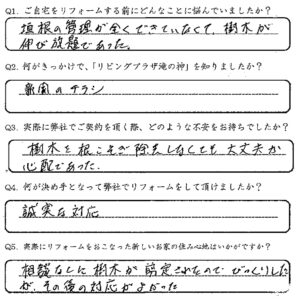 Q1. ご自宅をリフォームする前にどんなことに悩んでいましたか？
垣根の管理が全くできていなくて、樹木が
伸び放題であった。
Q2. 何がきっかけで、「リビングプラザ滝の神」を知りましたか？
新聞のチラシ
Q3. 実際に弊社でご契約を頂く際、どのような不安をお持ちでしたか？
樹木を根こそぎ除去しなくても大丈夫か
心配であった。
Q4. 何が決め手となって弊社でリフォームをして頂けましたか？
誠実な対応
Q5. 実際にリフォームをおこなった新しいお家の住み心地はいかがですか？
相談なしに樹木が剪定されたのでびっくりした
が、その後の対応がよかった